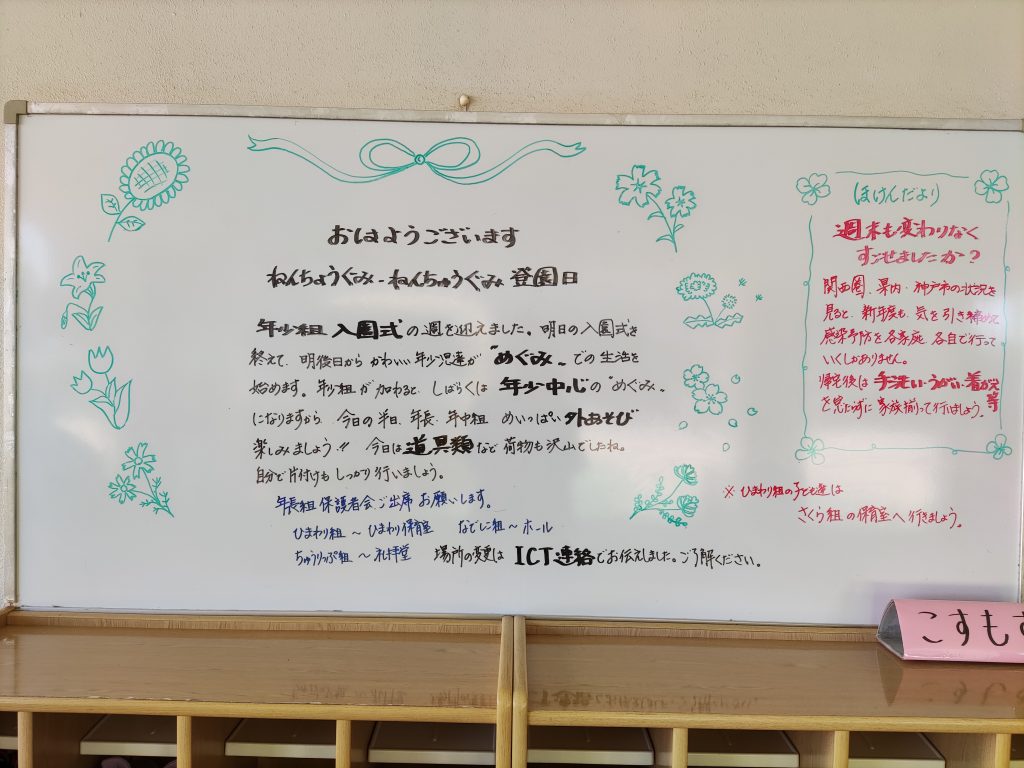 おはようございます
ねんちょうぐみ-ねんちゅうぐみ 登園日
年少組 入園式の週を迎えました。明日の入園式を
終えて、明後日から かわいい年少児達が "めぐみ" での生活を
始めます。年少組が加わると、しばらくは 年少中心の "めぐみ"
になりますから、今日の半日、年長、年中組 めいっぱい 外あそび
楽しみましょう!! 今日は道具類など荷物も沢山でしたね。
自分で片付けも しっかり行いましょう。
年長組 保護者会ご出席 お願いします。
ひまわり組 〜 ひまわり保育室 なでしこ組 〜 ホール
ちゅうりっぷ組 〜 礼拝堂 場所の変更は ICT連絡でお伝えしました。ご了解ください。
ほけんだより
週末も変わりなく
すごせましたか?
関西圏、県内、神戸市の状況を
見ると、新年度も、気を引き締めて
感染予防を各家庭、各自で行って
いくしかありません。
帰宅後は 手洗い・うがい・着がえ等
を 家族揃って行いましょう。
※ ひまわり組の子ども達は
さくら組の保育室へ行きましょう。
こすも